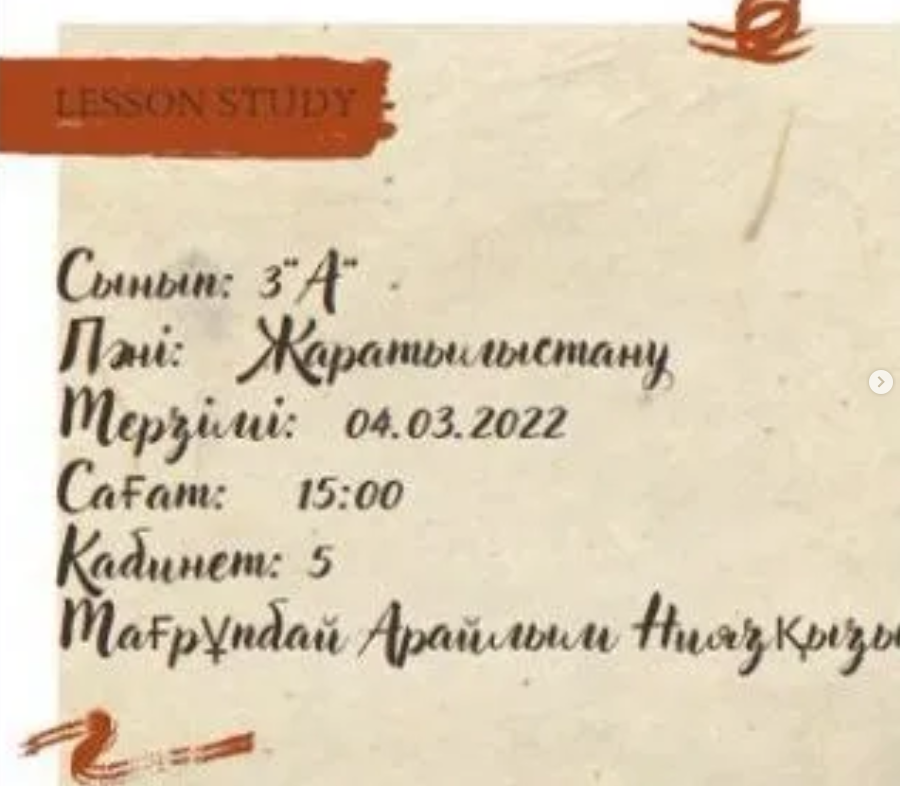 LESSON STUDY
Сынып: 3"А"
Пәні: Жаратылыстану
Мерзімі: 04.03.2022
Сағат: 15:00
Кабинет: 5
Мағрұпбай Арайлым Ниязқызы